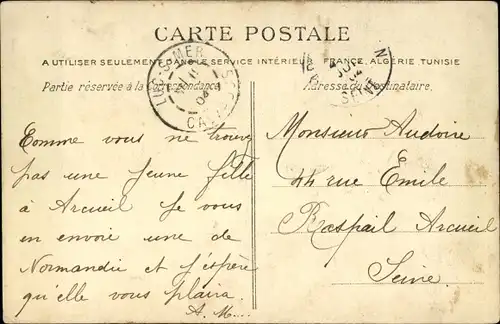 CARTE POSTALE
A UTILISER SEULEMENT DANS LE SERVICE INTÉRIEUR FRANCE, ALGÉRIE, TUNISIE
Partie réservée à la Correspondance
Adresse du Destinataire.
LUC-S-MER
CAL
SEINE
Comme vous ne trouvez
pas une jeune fille
à Arcueil je vous
en envoie une de
Normandie et j'espère
qu'elle vous plaira.
A. M....
Monsieur Audoire
44 rue Emile
Raspail Arcueil
Seine.